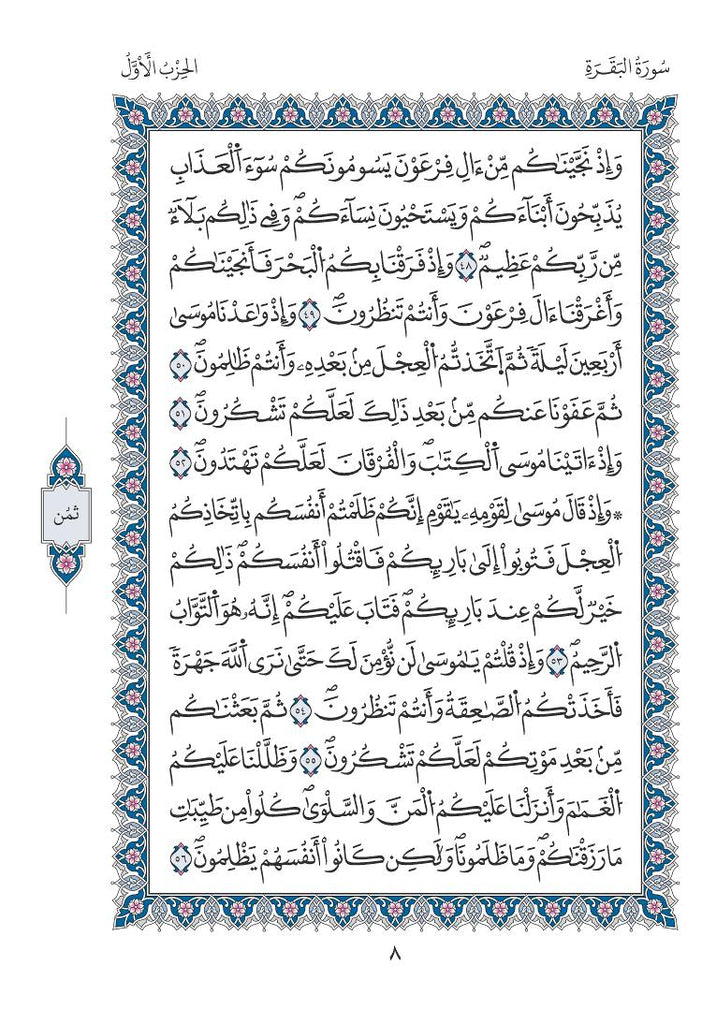 سُورَةُ البَقَرَةِ
الحِزْبُ الْأَوَّلُ
وَإِذْ نَجَّيْنَٰكُم مِّنْ ءَالِ فِرْعَوْنَ يَسُومُونَكُمْ سُوٓءَ اَ۬لْعَذَابِ
يُذَبِّحُونَ أَبْنَآءَكُمْ وَيَسْتَحْيُونَ نِسَآءَكُمْۖ وَفِے ذَٰلِكُم بَلَآءٞ
مِّن رَّبِّكُمْ عَظِيمٞۖ ٤٨ وَإِذْ فَرَقْنَا بِكُمُ اُ۬لْبَحْرَ فَأَنجَيْنَٰكُمْ
وَأَغْرَقْنَا ءَالَ فِرْعَوْنَ وَأَنتُمْ تَنظُرُونَۖ ٤٩ وَإِذْ وَٰعَدْنَا مُوسَىٰ
أَرْبَعِينَ لَيْلَةٗ ثُمَّ اَ۪تَّخَذتُّمُ اُ۬لْعِجْلَ مِنۢ بَعْدِهِۦ وَأَنتُمْ ظَٰلِمُونَۖ ٥٠
ثُمَّ عَفَوْنَا عَنكُم مِّنۢ بَعْدِ ذَٰلِكَ لَعَلَّكُمْ تَشْكُرُونَۖ ٥١
وَإِذْ ءَاتَيْنَا مُوسَى اَ۬لْكِتَٰبَ وَالْفُرْقَانَ لَعَلَّكُمْ تَهْتَدُونَۖ ٥٢
ثُمُن
۞وَإِذْ قَالَ مُوسَىٰ لِقَوْمِهِۦ يَٰقَوْمِ إِنَّكُمْ ظَلَمْتُمْ أَنفُسَكُم بِاتِّخَاذِكُمُ
اُ۬لْعِجْلَ فَتُوبُوٓاْ إِلَىٰ بَارِئِكُمْ فَاقْتُلُوٓاْ أَنفُسَكُمْۖ ذَٰلِكُمْ
خَيْرٞ لَّكُمْ عِندَ بَارِئِكُمْۖ فَتَابَ عَلَيْكُمْۖ إِنَّهُۥ هُوَ اَ۬لتَّوَّابُ
اُ۬لرَّحِيمُۖ ٥٣ وَإِذْ قُلْتُمْ يَٰمُوسَىٰ لَن نُّؤْمِنَ لَكَ حَتَّىٰ نَرَى اَ۬للَّهَ جَهْرَةٗ
فَأَخَذَتْكُمُ اُ۬لصَّٰعِقَةُ وَأَنتُمْ تَنظُرُونَۖ ٥٤ ثُمَّ بَعَثْنَٰكُم
مِّنۢ بَعْدِ مَوْتِكُمْ لَعَلَّكُمْ تَشْكُرُونَۖ ٥٥ وَظَلَّلْنَا عَلَيْكُمُ
اُ۬لْغَمَٰمَ وَأَنزَلْنَا عَلَيْكُمُ اُ۬لْمَنَّ وَالسَّلْوَىٰۖ كُلُواْ مِن طَيِّبَٰتِ
مَا رَزَقْنَٰكُمْۖ وَمَا ظَلَمُونَاۖ وَلَٰكِن كَانُوٓاْ أَنفُسَهُمْ يَظْلِمُونَۖ ٥٦
٨